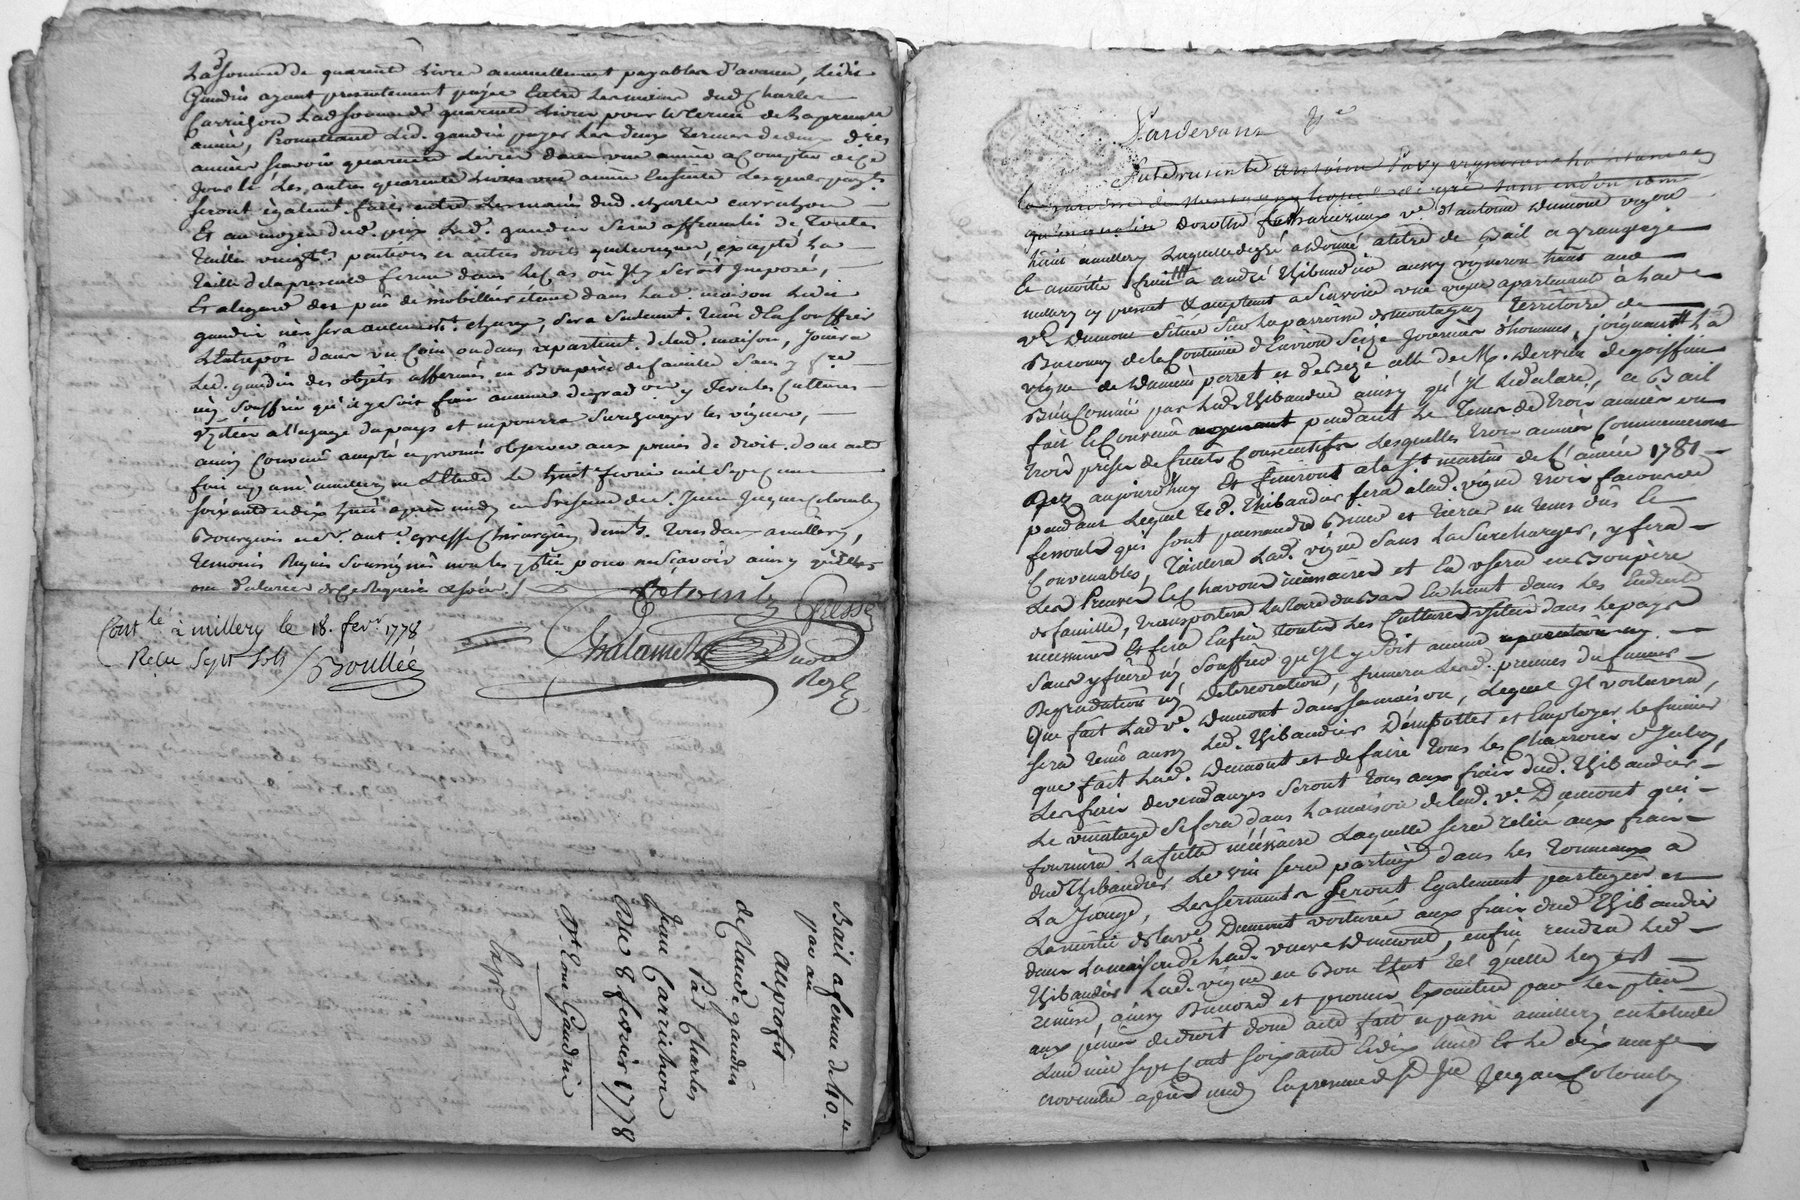 3
La somme de quarente Livre annuellement payables d'avance, Ledit
Gaudin ayant presentement payée Entre Les mains dud. Charles
Carrichon Lad. somme de quarente Livres pour le terme de la premiere
année, Promettant Led. gaudin payer Les deux termes de deux d.res
années scavoir quarente Livres dans une année a Compter de Ce
jour & Les autres quarente Livres une année Ensuite Lesquels payts.
seront également faits entre Les mains dud. charles carrichon
Et au moyen dud. prix Led. gaudin sera affranchi de Toutes
Tailles vingts. et autres droits quelconques, excepté La
Taille de la presente ferme dans Le Cas où Il y seroit Imposé,
Et alegard des de mobilliers étant dans Lad. maison Ledit
gaudin n'en sera aucunemt. chargé, sera seulemt. tenu d'En souffrir
L'Entrepôt dans un Coin ou dans apartemt. de Lad. maison, Jouira
Led. gaudin des objets affermés en Bon père de famille sans y fre.
ny souffrir qu'il y soit fait aucune degradon. y fera les Cultures
usitées a l'usage du pays et ne pourra surcharger les vignes,
ainsy Convenû accepté a promis observer aux peines de droit. dont acte
fait & passé a millery en L'Etude Le huit fevrier mil Sept Cent
soixante et dix huit après midy en Presence de Sr. Jean Jacques Colomby
Bourgeois et Sr. ant. Gresse Chirurgien demts. tous deux a millery,
Temoins Requis soussignés non les pties. pour ne scavoir ainsy qu'elles
ont declarés de Ce Requises &
Colomby Gresse
Chalamel
Ducre
Con.lé à millery le 18. fevr. 1778
Reçu Sept sols Boullée
Bail a ferme de 40.ll
par an
au profit
de Claude gaudin
Par Charles
Jean Carrichon
Du 8 fevrier 1778
Pardevant
Fut presente Antoine Pavy vigneron habitant en
la paroisse de
Dorothé veuve d'antoine Dumont vigneron
a millery Laquelle de gré a donné a titre de Bail a grangeage
Et a moitié fruits a andré Thibaudier aussy vigneron habt. aud.
millery cy present & acceptant a Scavoir une vigne apartenant à Lad.
ve. Dumont située sur la paroisse de montagny Territoire de
de la Contenüe d'Environ Seize Journées d'hommes, joignant la
vigne de perret et de Bize celle de M. Dervieu de goiffieu
Bien Connüe par Led. Thibaudier ainsy qu'Il L'a declaré, Ce Bail
fait & Convenû pendant Le Tems de trois années ou
trois prises de fruits Consecutifs Lesquelles trois années Commenceront
dez aujourd'huy Et finiront a la St. martin de L'année 1781
pendant Lequel Led. Thibaudier fera a lad. vigne trois façons de
fessoule qui sont Biner et Tiercer en tems dûs &
Convenables, Taillera Lad. vigne sans La Surcharger, y fera
Les Preuves & chavons nécessaires et En usera en Bon père
de famille, transportera La terre du Bas En haut dans Les Endroits
nécessaires & fera Enfin toutes Les Cultures Usitées dans Le pays
sans y faire ny Souffrir qu'Il y soit aucune
Degradation ny Deterioration, fumera Led. preneur du fumier
Que fait Lad. ve. Dumont dans sa maison, Lequel Il voiturera,
sera tenû aussy Led. Thibaudier D'empotter et Employer Le fumier
que fait Lad. Dumont et de faire tous les Charrois d'Iceluy,
Les frais de vendanges seront tous aux frais dud. Thibaudier
Le vinntage se fera dans La maison de Lad. ve. Dumont qui
fournira La futte nécéssaire Laquelle sera reliée aux frais
dud. Thibaudier Le vin sera partagé dans Les tonneaux a
La Jauge, Les serments seront Egalement partagés et
La moitié de la ve. Dumont voiturée aux frais dud. Thibaudier
dans La maison de Lad. veuve Dumont, enfin rendra Led.
Thibaudier Lad. vigne en Bon Etat tel qu'elle luy est
remise, ainsy Convenû et promis Executer par Les pties.
aux peines de droit dont acte fait & passé a millery en L'etude
L'an mil sept Cent soixante & dix huit Et Le dix neuf
novembre après midy En presence de Sr. Jn. Jacques Colomby